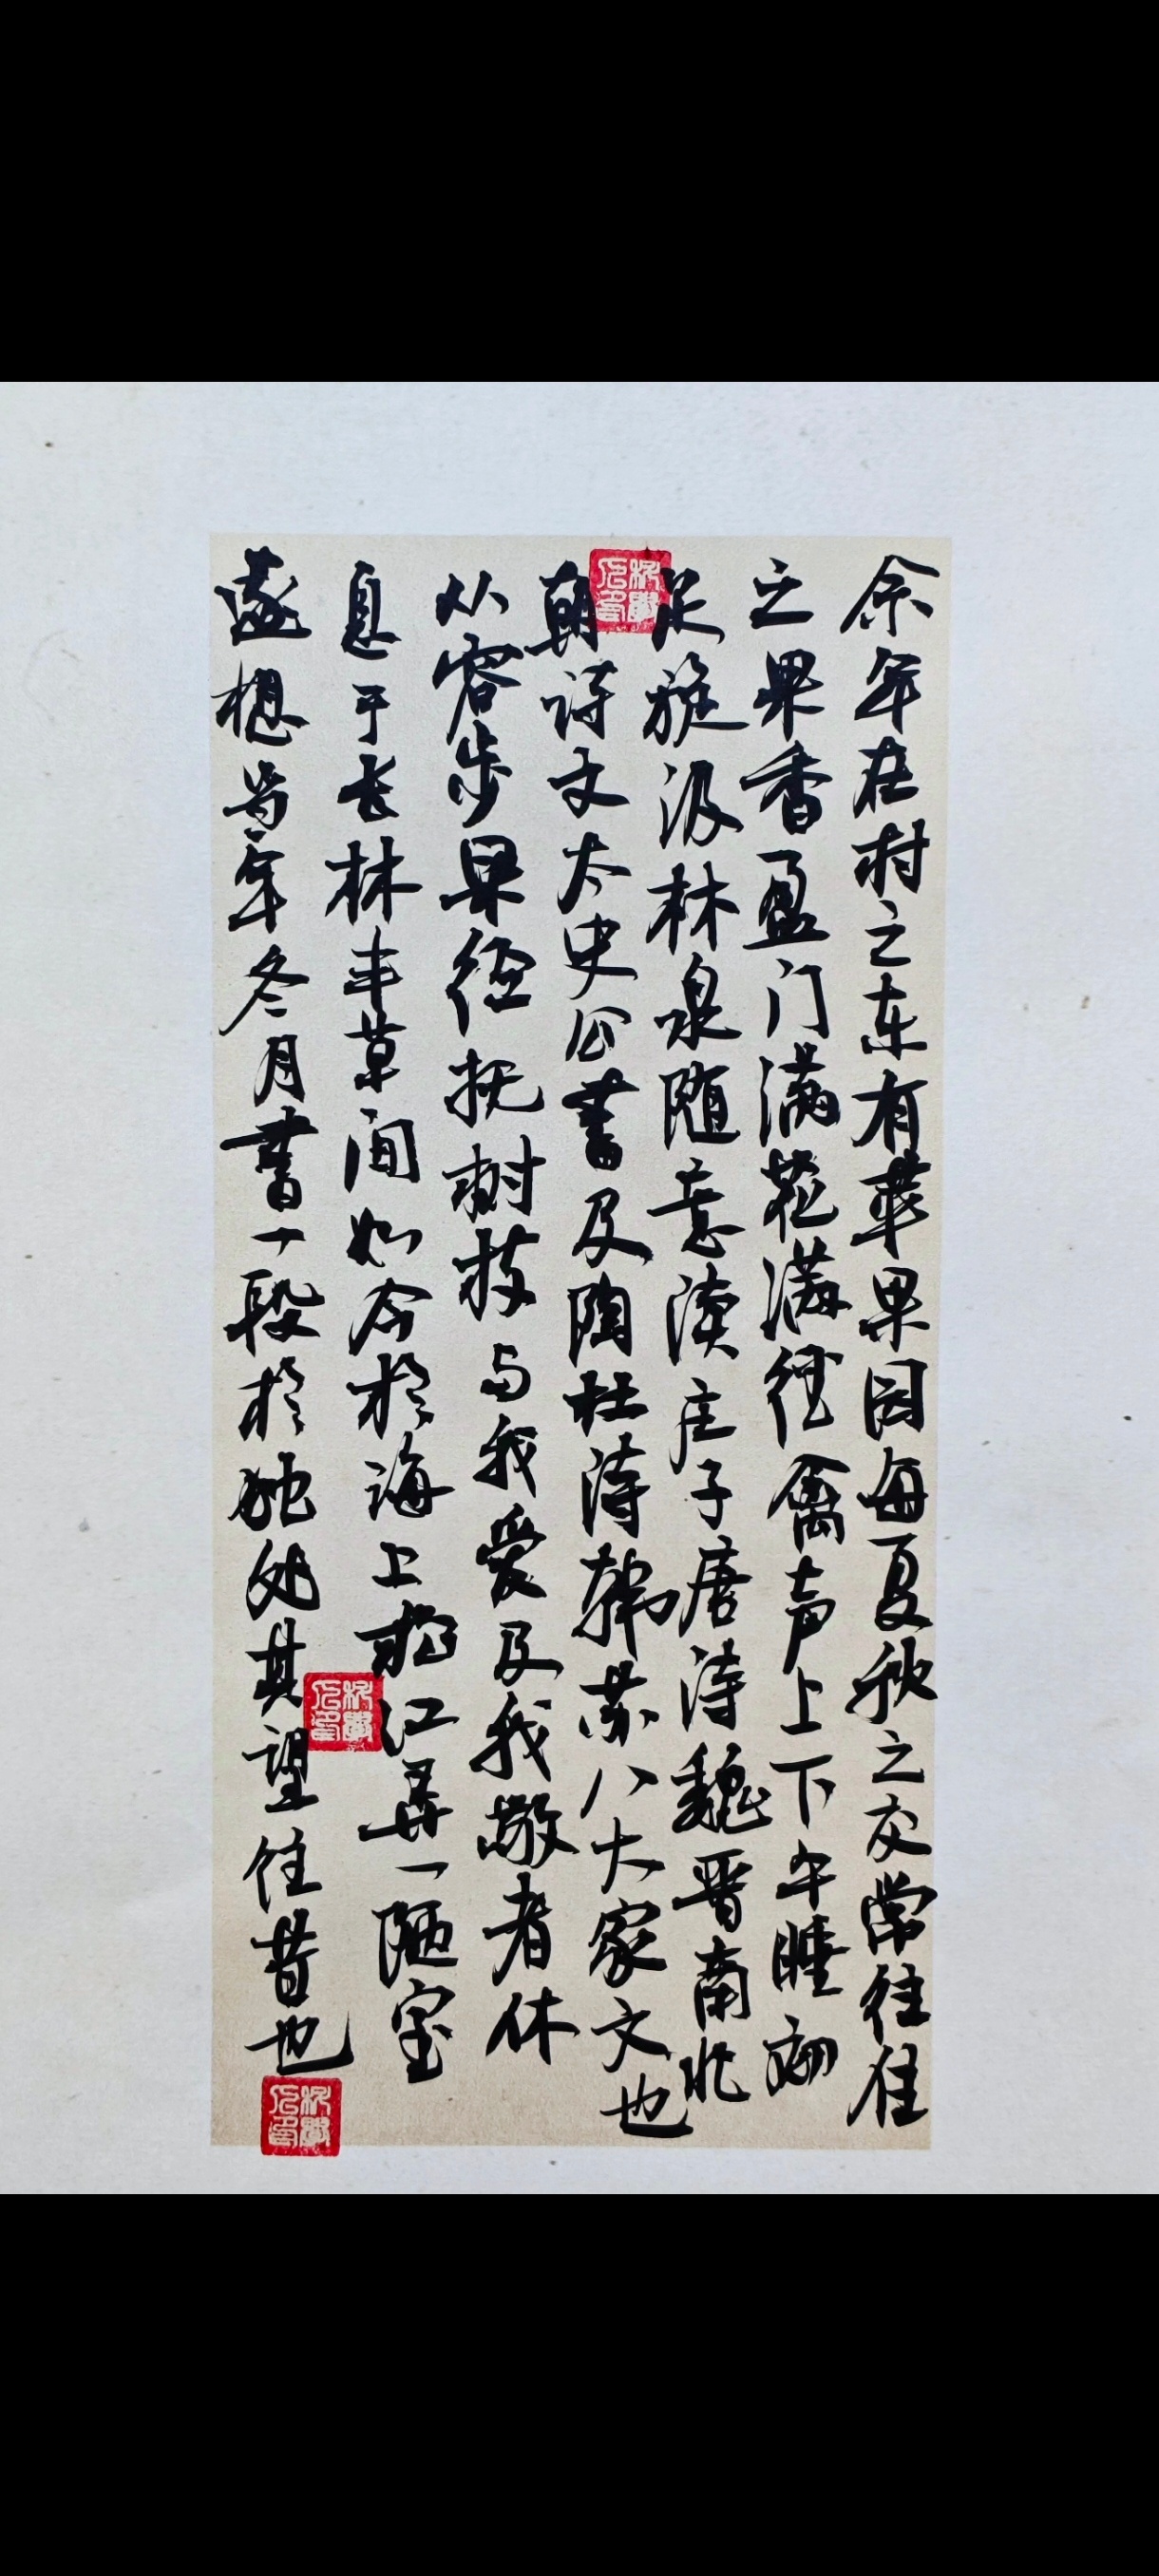 余年在村之东有苹果园每夏秋之交常往住
之果香盈门满苑满径禽声上下午睡初
足旋汲林泉随意读庄子唐诗魏晋南北
朝诗文太史公书及陶杜诗韩苏八大家文也
从容步果径抚树枝与我爱及我敬者休
息于长林丰草间如今于海上松江弄一陋室
遂想当年冬月书一段于
其望往昔也